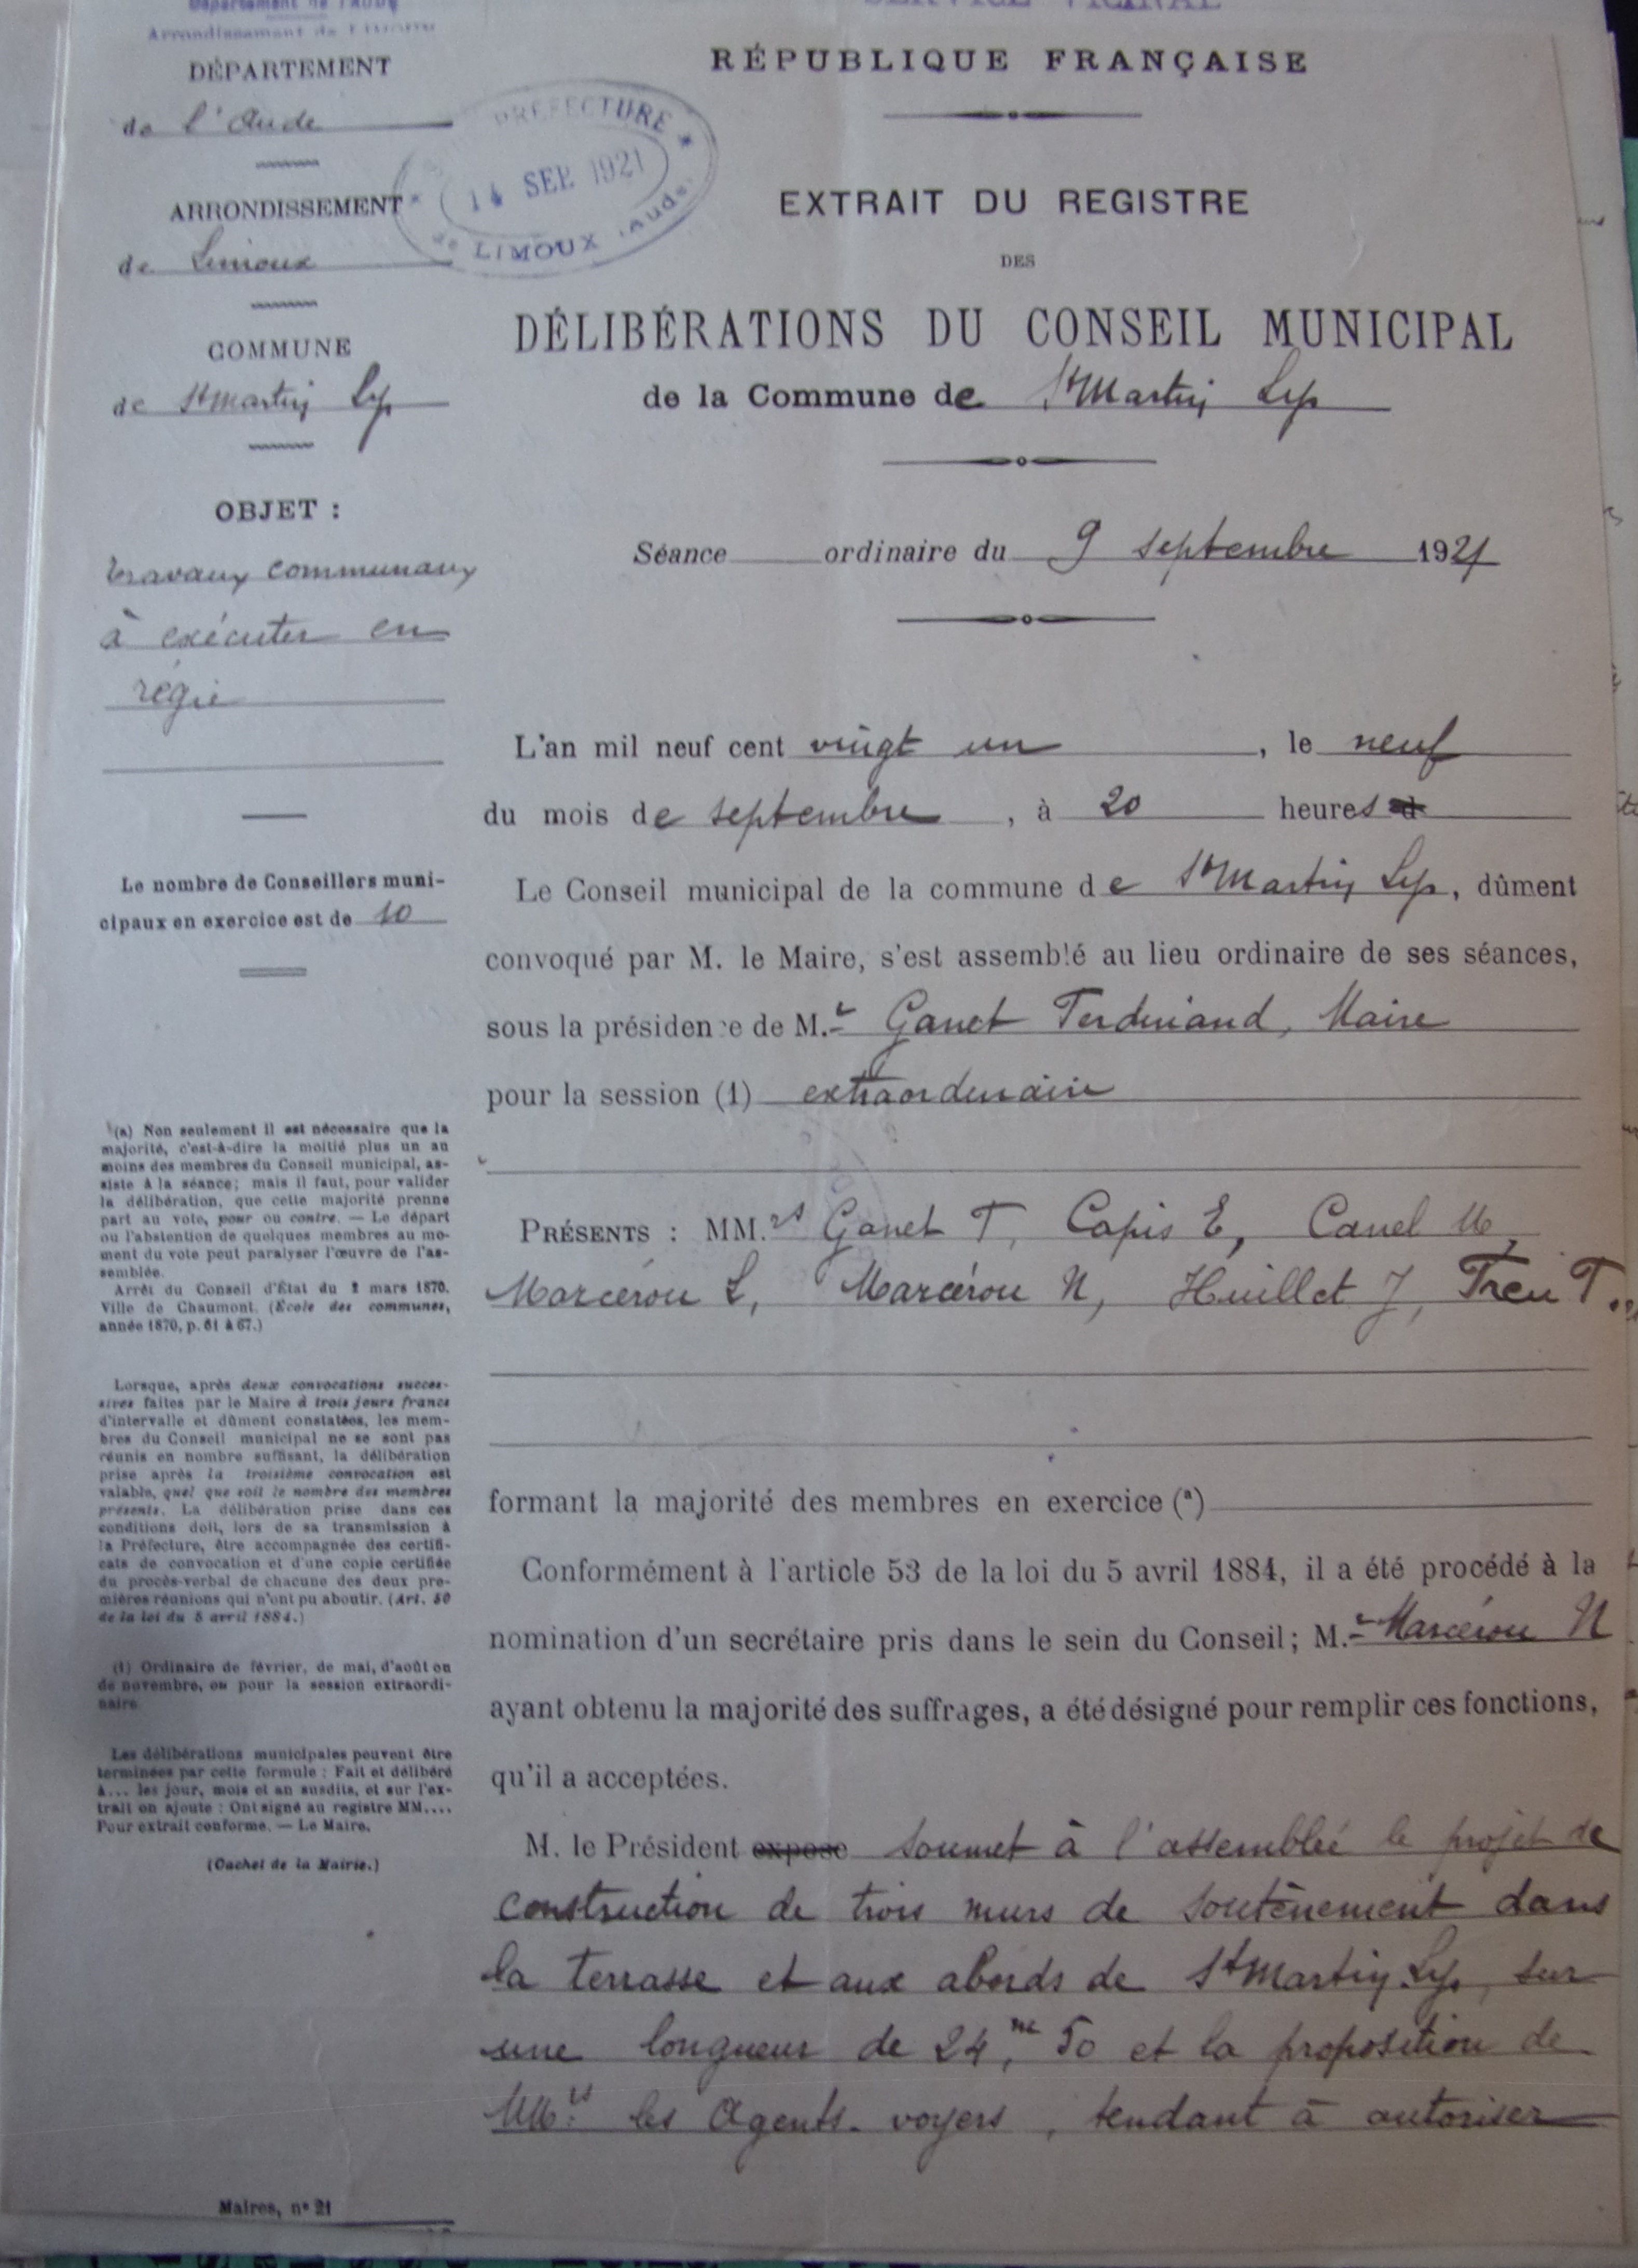 Département de l'Aude
Arrondissement de Limoux
SERVICE VICINAL
DÉPARTEMENT
de l'Aude
ARRONDISSEMENT
de Limoux
COMMUNE
de St Martin Lys
OBJET :
travaux communaux
à exécuter en
régie
Le nombre de Conseillers muni-
cipaux en exercice est de 10
(a) Non seulement il est nécessaire que la
majorité, c'est-à-dire la moitié plus un au
moins des membres du Conseil municipal, as-
siste à la séance; mais il faut, pour valider
la délibération, que cette majorité prenne
part au vote, pour ou contre. — Le départ
ou l'abstention de quelques membres au mo-
ment du vote peut paralyser l'œuvre de l'as-
semblée.
Arrêt du Conseil d'État du 2 mars 1870.
Ville de Chaumont. (École des communes,
année 1870, p. 61 à 67.)
Lorsque, après deux convocations succes-
sives faites par le Maire à trois jours francs
d'intervalle et dûment constatées, les mem-
bres du Conseil municipal ne se sont pas
réunis en nombre suffisant, la délibération
prise après la troisième convocation est
valable, quel que soit le nombre des membres
présents. La délibération prise dans ces
conditions doit, lors de sa transmission à
la Préfecture, être accompagnée des certifi-
cats de convocation et d'une copie certifiée
du procès-verbal de chacune des deux pre-
mières réunions qui n'ont pu aboutir. (Art. 50
de la loi du 5 avril 1884.)
(1) Ordinaire de février, de mai, d'août ou
de novembre, ou pour la session extraordi-
naire.
Les délibérations municipales peuvent être
terminées par cette formule : Fait et délibéré
à... les jour, mois et an susdits, et sur l'ex-
trait on ajoute : Ont signé au registre MM....
Pour extrait conforme. — Le Maire.
(Cachet de la Mairie.)
Maires, n° 21
PRÉFECTURE
14 SEP. 1921
de LIMOUX (Aude)
RÉPUBLIQUE FRANÇAISE
EXTRAIT DU REGISTRE
DES
DÉLIBÉRATIONS DU CONSEIL MUNICIPAL
de la Commune de St Martin Lys
Séance ordinaire du 9 septembre 1921
L'an mil neuf cent vingt un, le neuf
du mois de septembre, à 20 heures d
Le Conseil municipal de la commune de St Martin Lys, dûment
convoqué par M. le Maire, s'est assemblé au lieu ordinaire de ses séances,
sous la présidence de M.r Ganet Ferdinand, Maire
pour la session (1) extraordinaire
PRÉSENTS : MM.rs Ganet F, Capis E, Canel M,
Marcérou L, Marcérou N, Huillet J, Treu T..
formant la majorité des membres en exercice (a)
Conformément à l'article 53 de la loi du 5 avril 1884, il a été procédé à la
nomination d'un secrétaire pris dans le sein du Conseil; M.r Marcérou N
ayant obtenu la majorité des suffrages, a été désigné pour remplir ces fonctions,
qu'il a acceptées.
M. le Président expose soumet à l'assemblée le projet de
construction de trois murs de soutènement dans
la terrasse et aux abords de St Martin Lys, sur
une longueur de 24,m 50 et la proposition de
MM.rs les Agents-voyers, tendant à autoriser